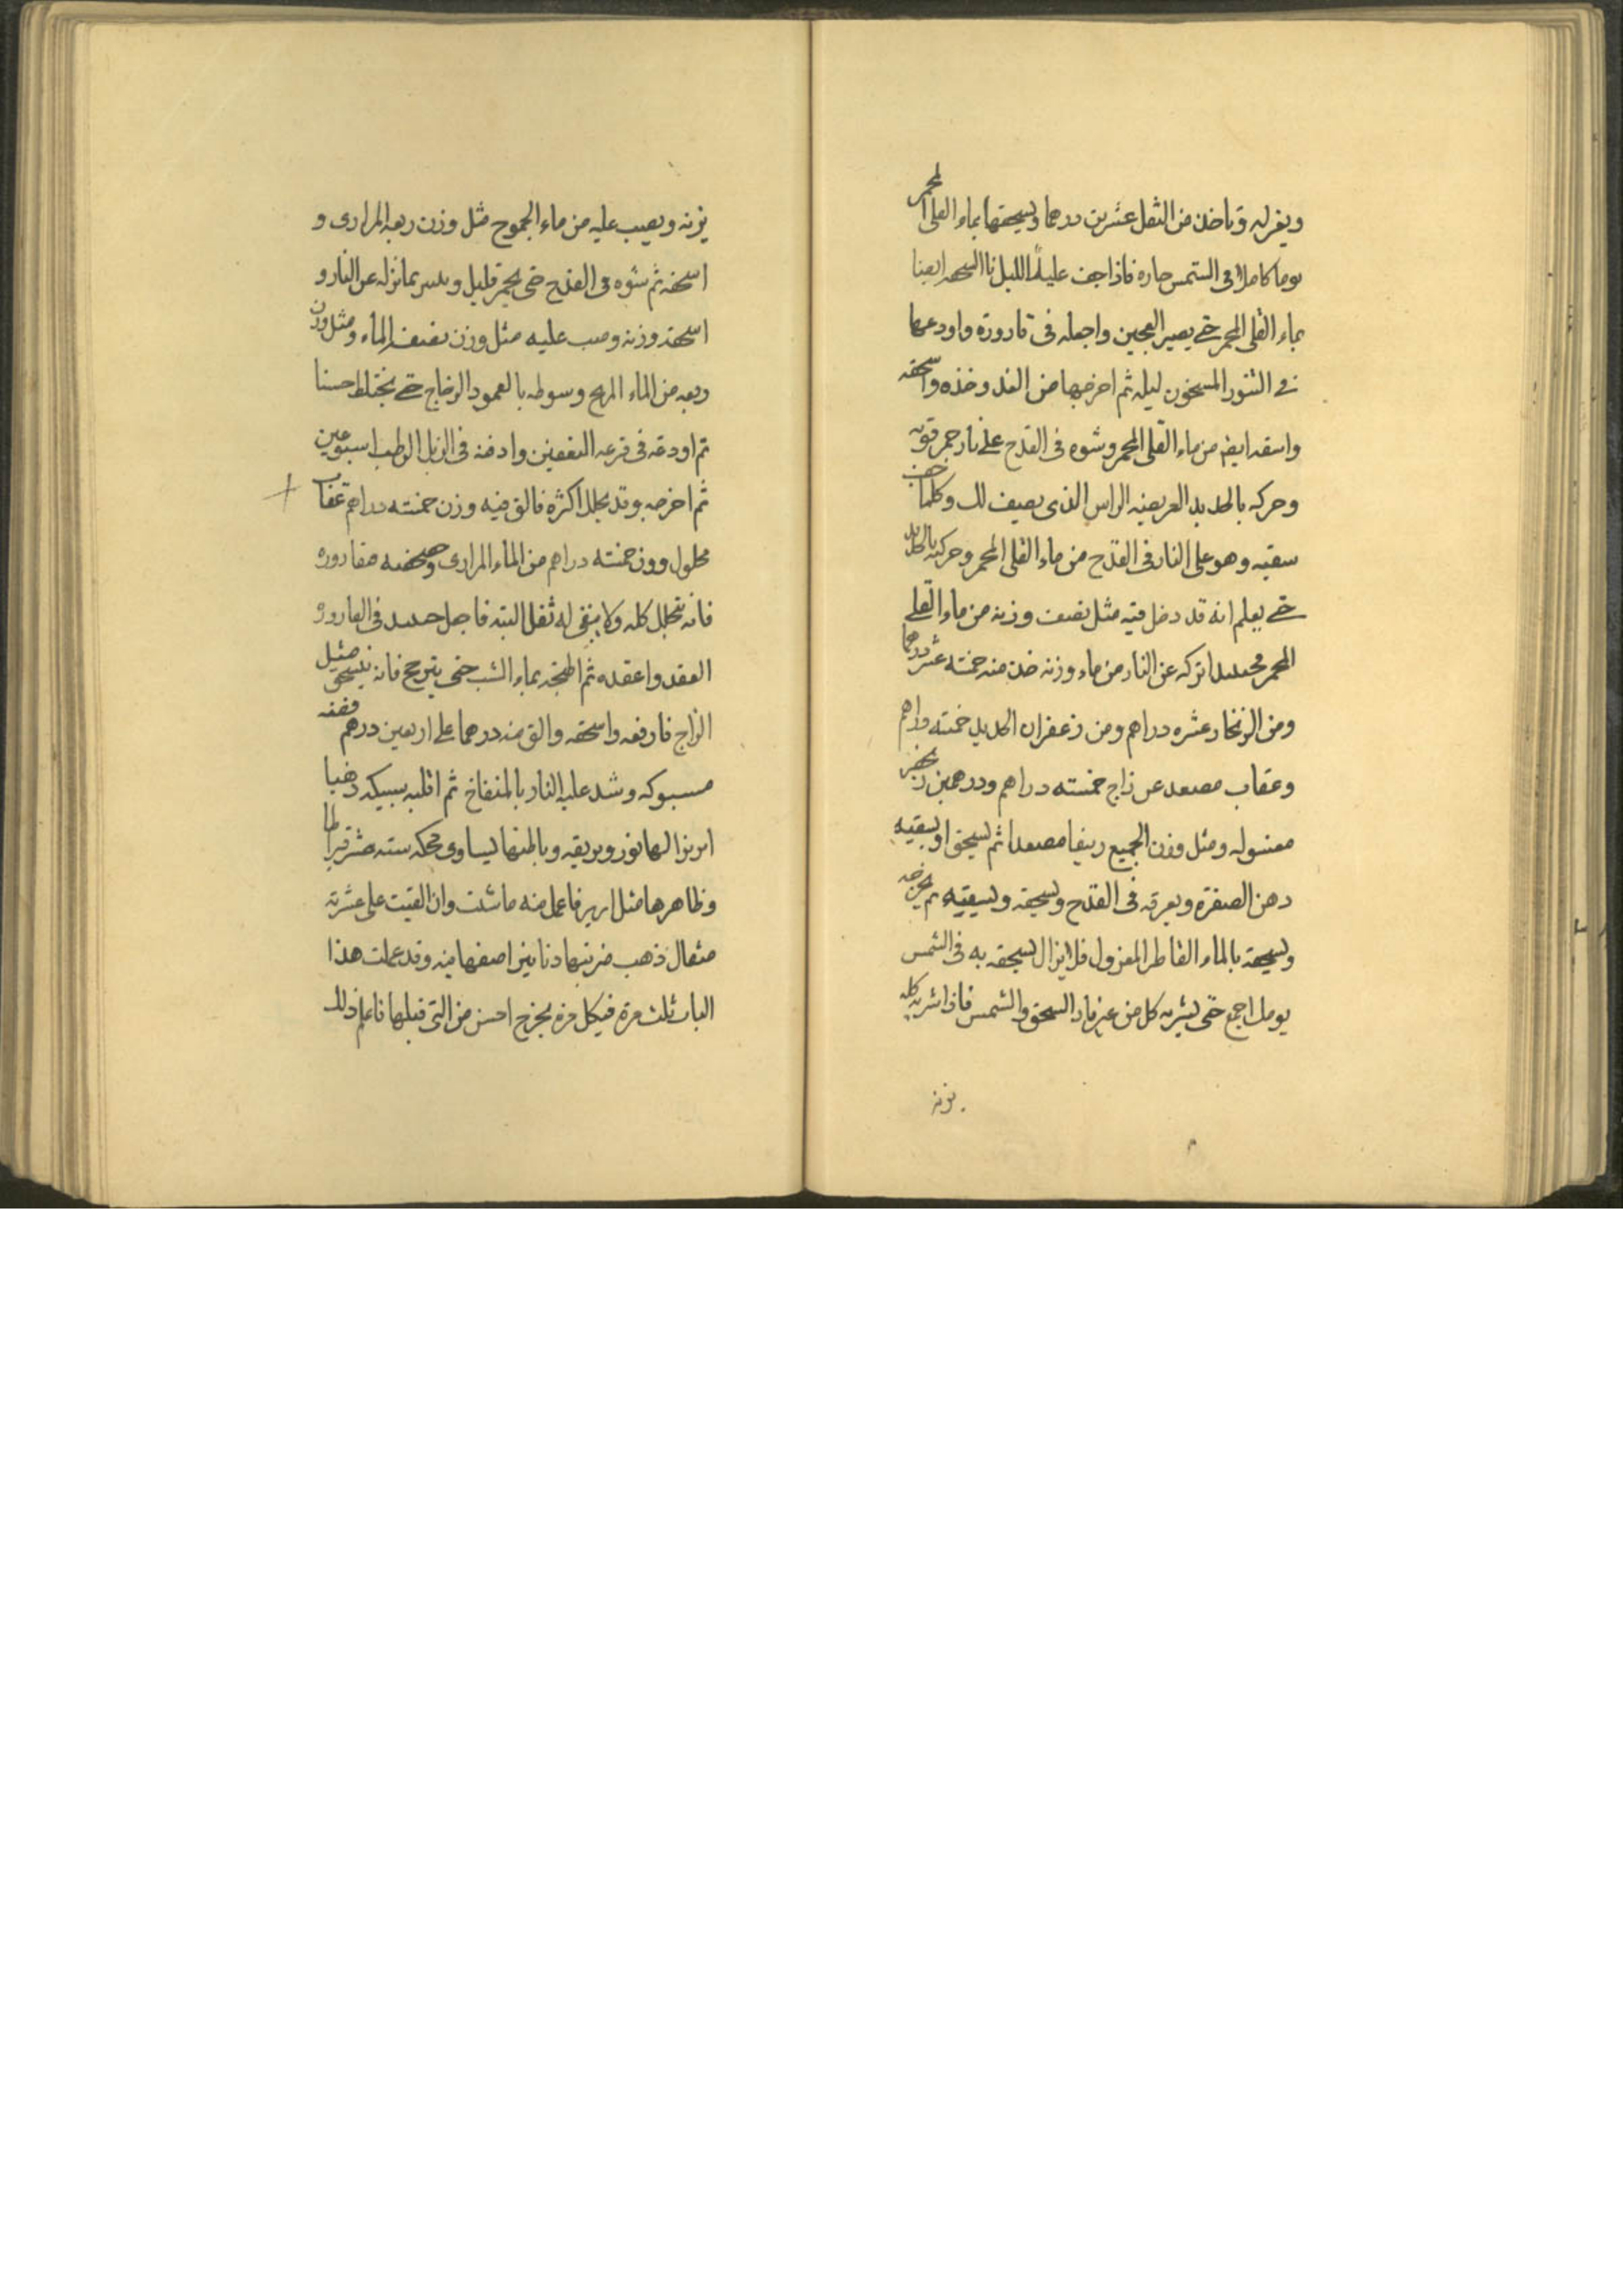 ويعزله وتاخذ من الثفل عشرين درهما ويسحقها بماء القلى المحمر
يوما كاملا فى الشمس حاره فاذا جف عليه الليل ايضا
بماء القلى المحمر حتى يصير العجين واجعله فى قاروره واودعها
فى التنور المسخون ليله ثم اخرجها من الغد وخذه واسحقه
واسقه ايضا من ماء القلى المحمر وشوه فى القدح على نار جمر قويه
وحركه بالحديد العريضه الراس الذى يصيف لك وكلما جف
سقيه وهو على النار فى القدح من ماء القلى المحمر وحركته بالحديد
حتى يعلم انه قد دخل فيه مثل نصف وزنه من ماء القلى
المحمر اتركه عن النار من ماء وزنه خذ منه خمسته عشر درهما
ومن الزنجار عشره دراهم ومن زعفران الحديد خمسته دراهم
وعقاب مصعد عن زاج خمسته دراهم ودرهمين
مغسوله ومثل وزن الجميع زيبقا مصعدا ثم يسحق او يسقيه
دهن الصفرة ويعرقه فى القدح ويسحقه ويسقيه ثم يخرجه
ويسحقه بالماء القاطر المعزول فلا يزال يسحقه به فى الشمس
يومك اجمع حتى يشربه كل من السحق والشمس فاذا شربه كله
يزنه
يزنه ويصب عليه من ماء الجموح مثل وزن ربعه المرارى و
اسحقه ثم شوه فى القدح حتى يحمر قليل انزله عن النار و
اسحقه وزنه وصب عليه مثل وزن نصفه الماء ومثل وزن
ربعه من الماء وسوطه بالعمود الزجاج حتى يختلط حسنا
ثم اودعه فى قرعه التعفين وادفنه فى الزبل الرطب اسبوعين
ثم اخرجه وقد يحلل اكثره فالق فيه وزن خمسته دراهم عقاب
محلول ووزن خمسته دراهم من الماء المرارى قاروره
فانه يتحلل كله ولا يبقى له ثفل البته فاجعل فى القارورو
العقد واعقده ثم اطبخه بماء الشب حتى فانه مثل
الزاج فارفعه واسحقه والق منه درهما على اربعين درهم فضه
مسبوكه وشد عليه النار بالمنفاخ ثم اقلبه سبيكه ذهبا
ابريزا لها نور وبريقه وباطنها يساوى محكه سته عشر قيراطا
وظاهرها مثل ابريز فاعمل منه ما شئت وان القيت على عشرته
مثقال ذهب ضربتها دنانير اصفها منه وقد عملت هذا
الباب ثلث مرة فى كل مره يخرج احسن من التى قبلها فاعلم ذلك